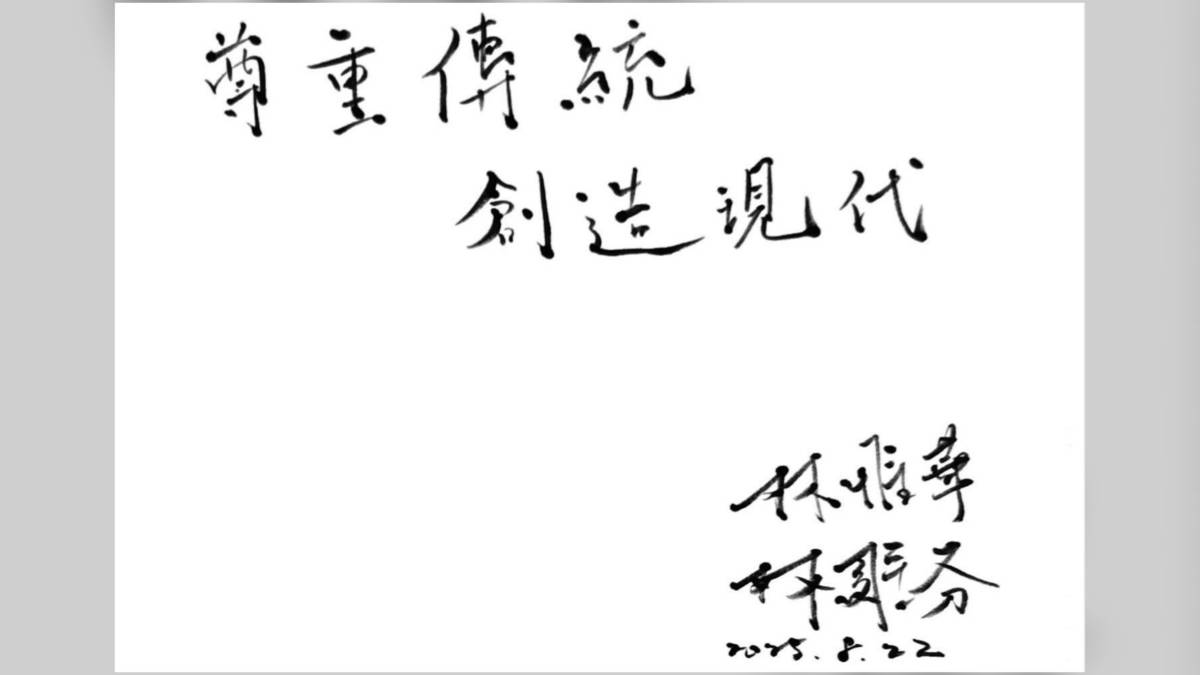 尊重傳統
創造現代
林惟華
林
2025.8.22